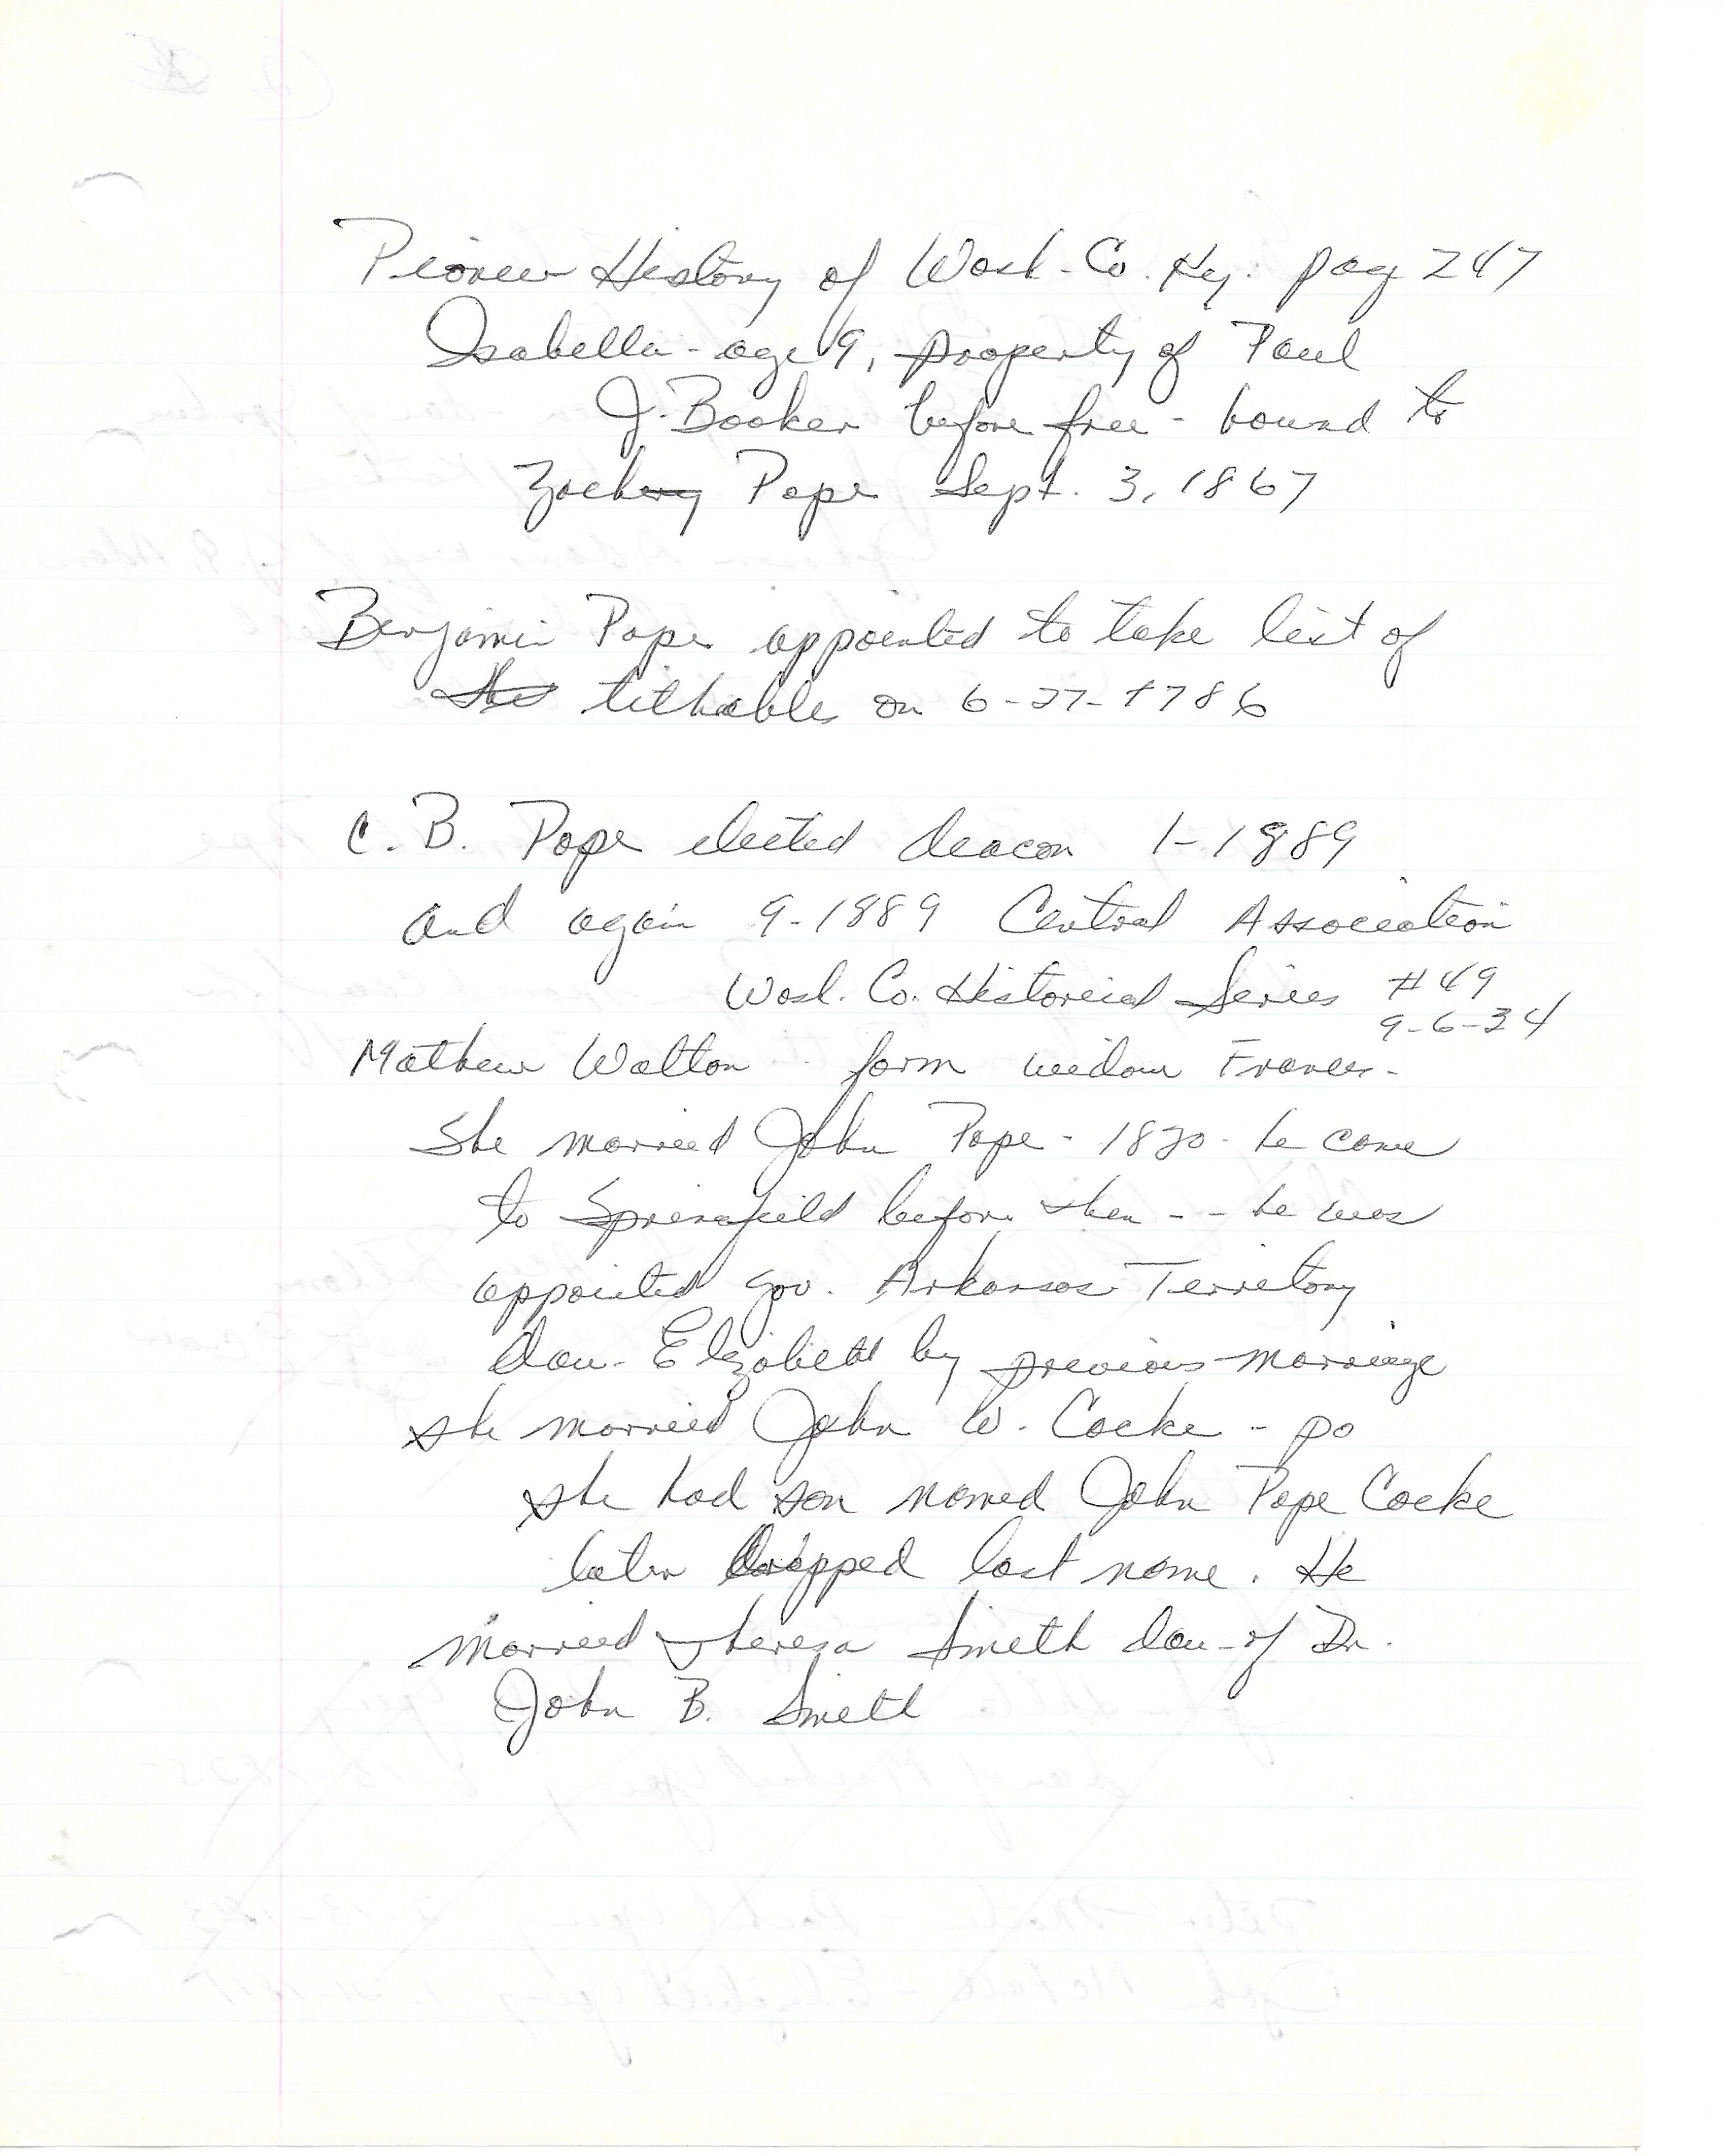 Pioneer History of Wash. Co. Ky. pag 247
Isabella - age 9, property of Paul
J. Booker before free - bound to
Zachery Pope Sept. 3, 1867
Benjamin Pope appointed to take list of
the tithables on 6-27-1786
C. B. Pope elected deacon 1-1889
and again 9-1889 Central Association
Wash. Co. Historical Series #49
9-6-34
Mathew Walton farm widow Frances -
She married John Pope - 1820 - he came
to Springfield before then - - he was
appointed gov. Arkansas Territory
dau - Elizabeth by previous marriage
she married John W. Cocke - po
she had son named John Pope Cocke
later dropped last name. He
married Theresa Smith dau - of Dr.
John B. Smith